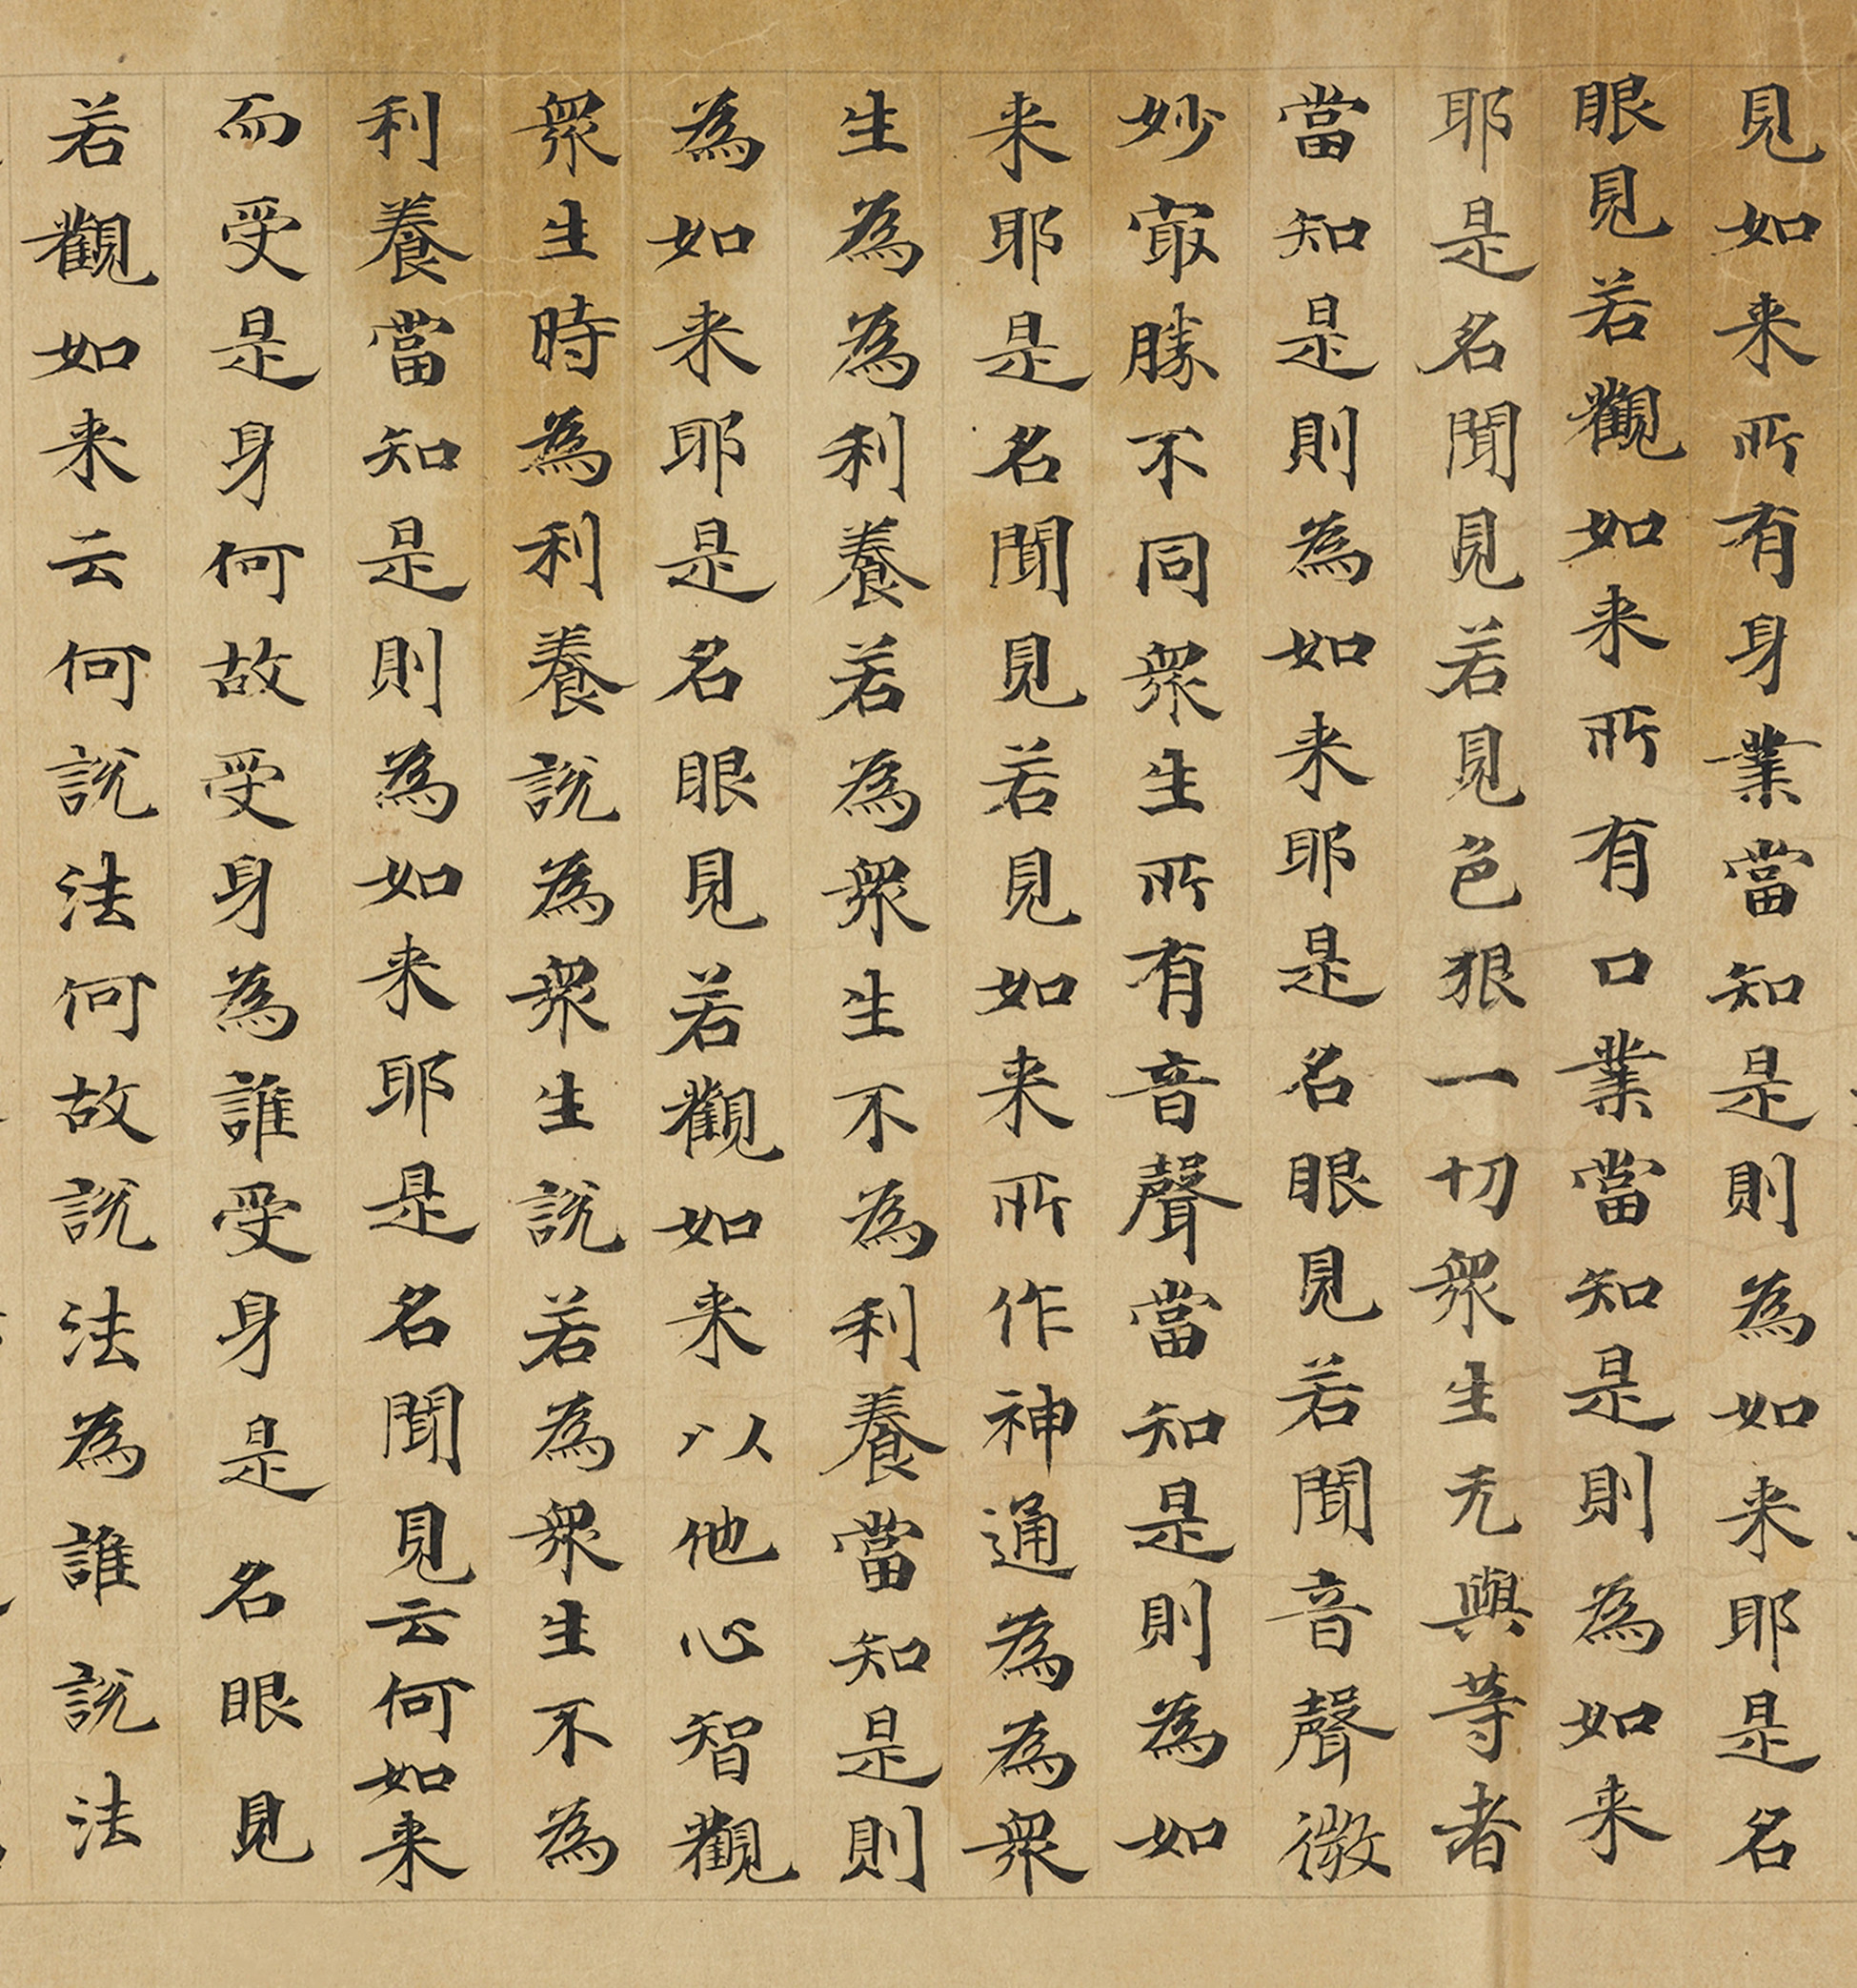 見如来所有身業當知是則為如来耶是名
眼見若觀如来所有口業當知是則為如来
耶是名聞見若見色㒵一切衆生无與等者
當知是則為如来耶是名眼見若聞音聲微
妙冣勝不同衆生所有音聲當知是則為如
来耶是名聞見若見如来所作神通為為衆
生為為利養若為衆生不為利養當知是則
為如来耶是名眼見若觀如来以他心智觀
衆生時為利養說為衆生說若為衆生不為
利養當知是則為如来耶是名聞見云何如来
而受是身何故受身為誰受身是名眼見
若觀如来云何說法何故說法為誰說法